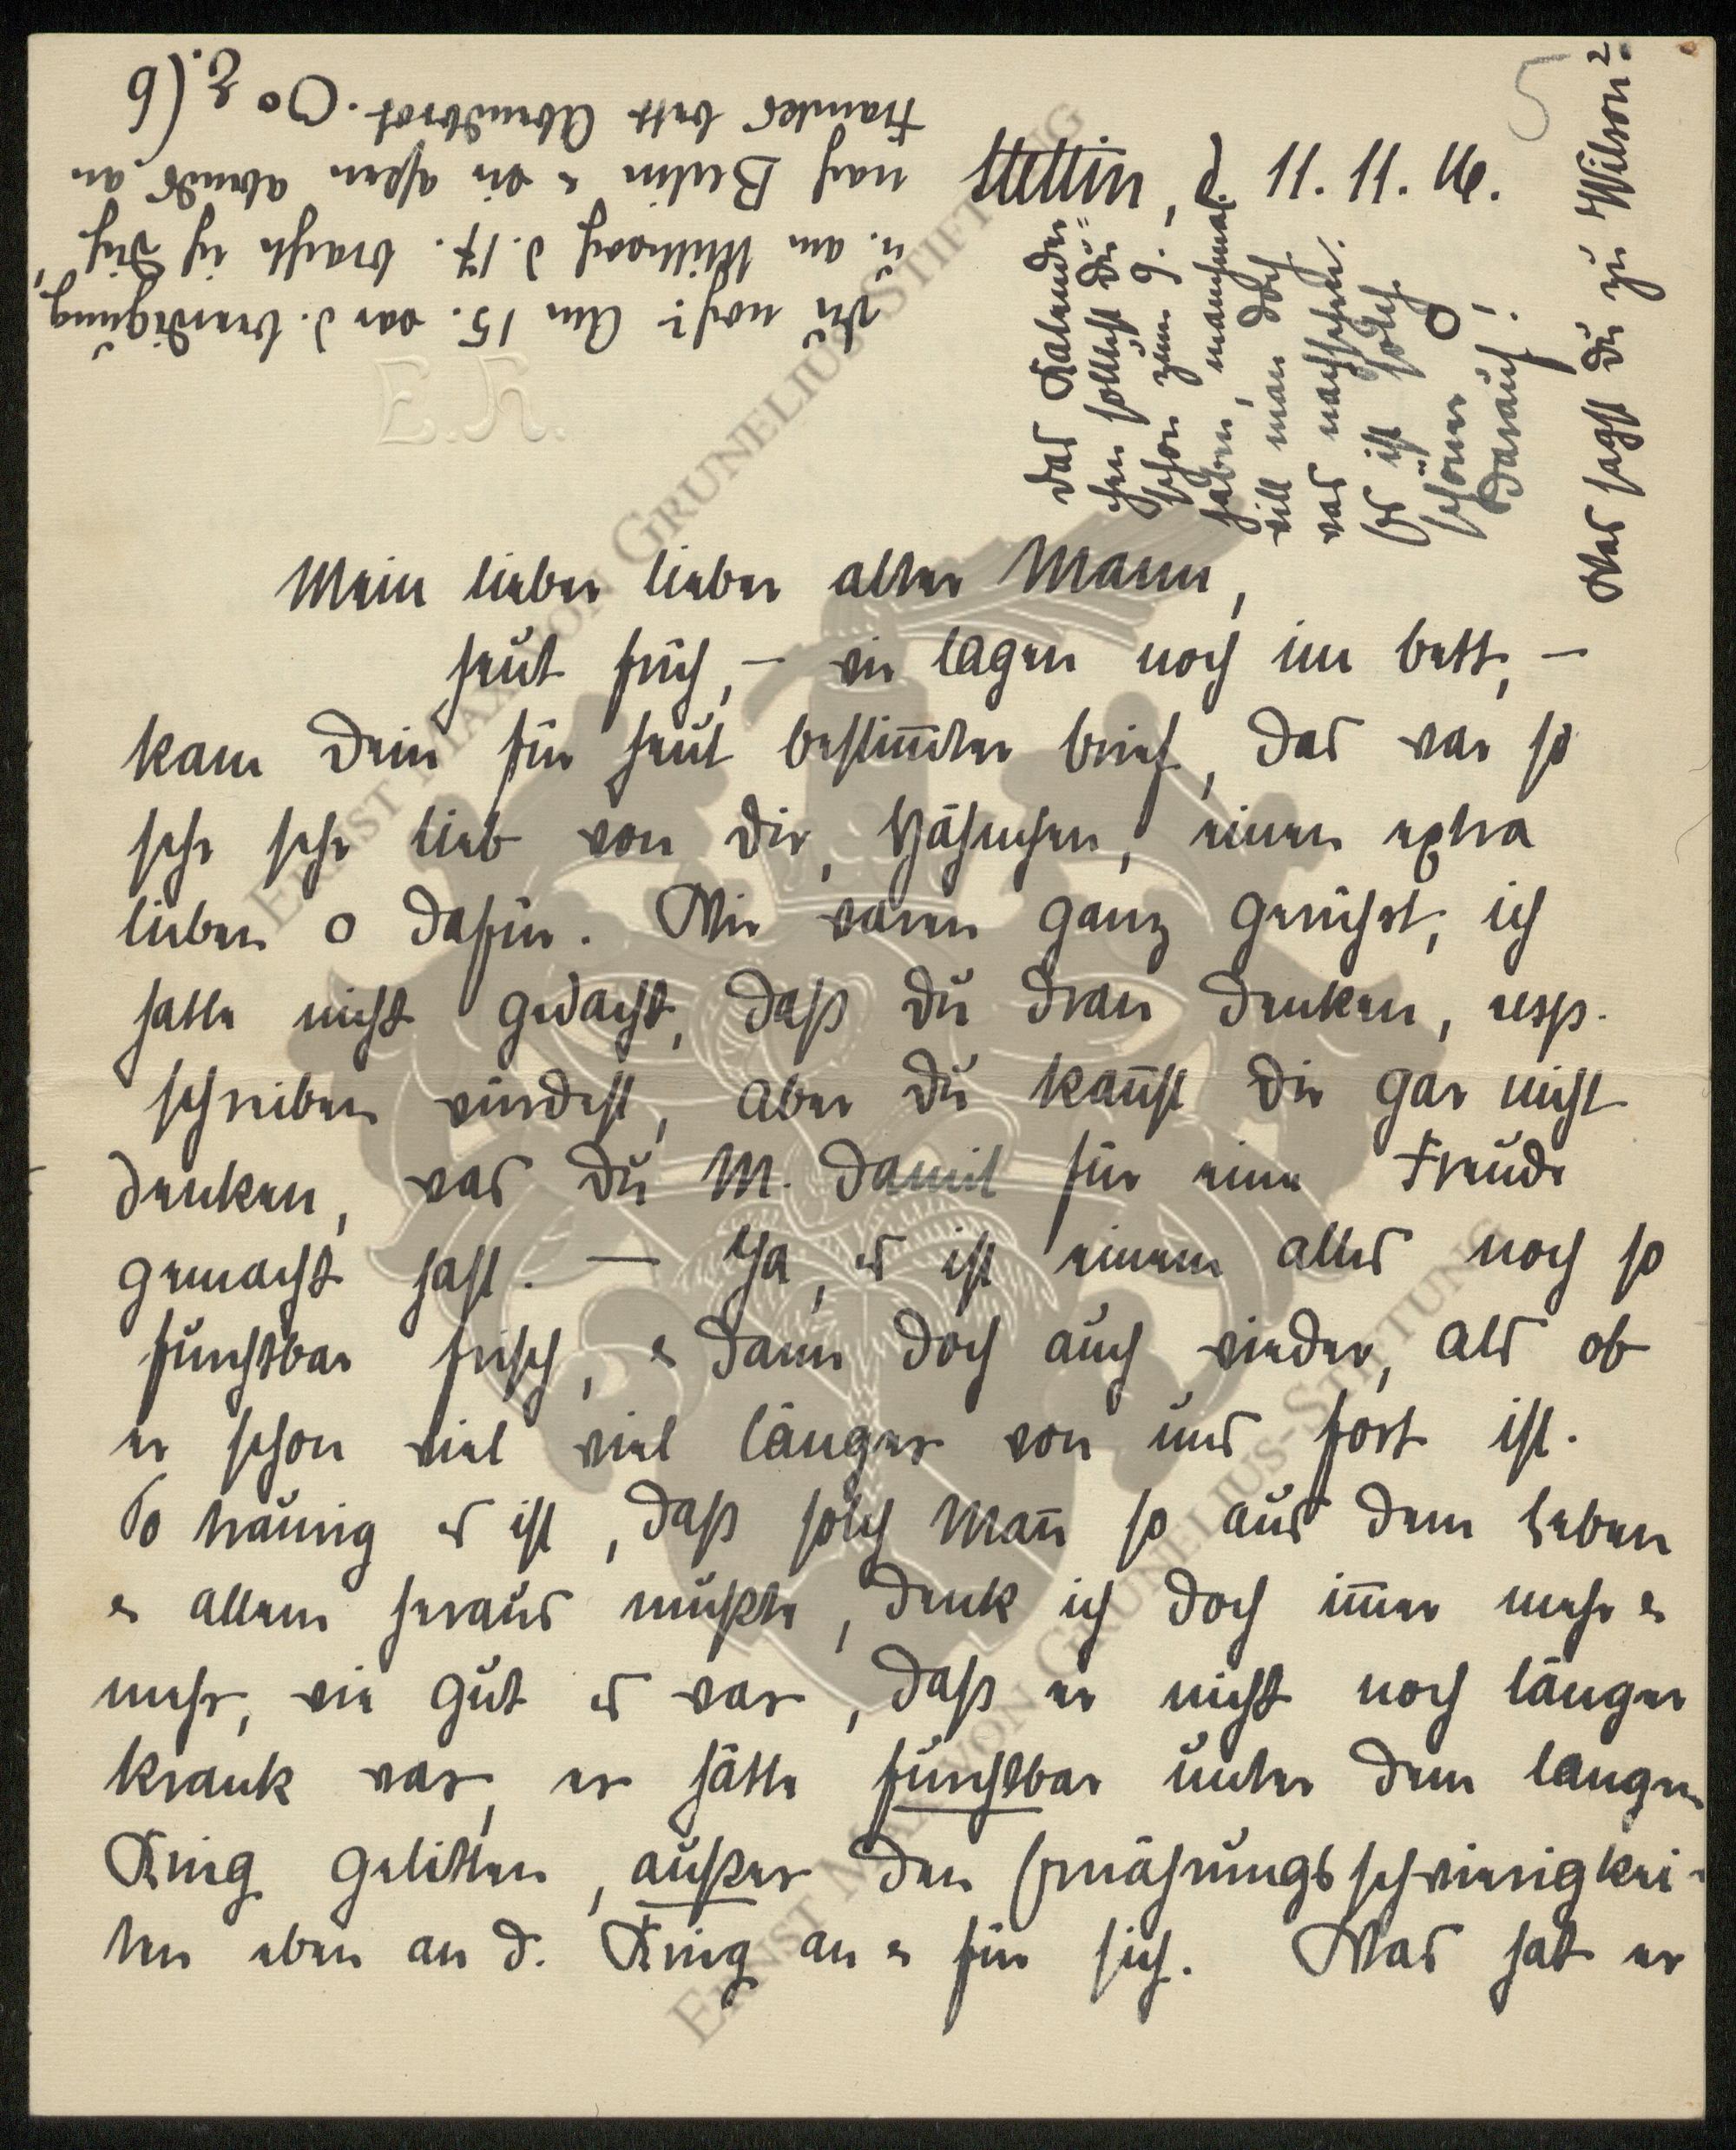 Stettin, d. 11. 11. 16.
5
Mein lieber lieber alter Mann,
heut früh, – wir lagen noch im bett, –
kam Dein für heut bestimmter brief, das war so
sehr sehr lieb von Dir, Hähnchen, einen extra
lieben o dafür. Wir waren ganz gerührt, ich
hatte nicht gedacht, daß Du dran denken, resp.
schreiben würdest, aber Du kannst Dir gar nicht
denken, was Du M. damit für eine Freude
gemacht hast. — Ja, es ist einem alles noch so
furchtbar frisch, & dann doch auch wieder, als ob
er schon viel viel länger von uns fort ist.
So traurig es ist, daß solch Mann so aus dem Leben
& allem heraus mußte, denk ich doch immer mehr &
mehr, wie gut es war, daß er nicht noch länger
krank war, er hätte furchtbar unter dem langen
Krieg gelitten, außer den Ernährungsschwierigkei-
ten eben an d. Krieg an & für sich. Was hat er
Du noch? Am 15. war d. beerdigung,
u. am Mittwoch d. 17. brachte ich Dich
nach Berlin & wir aßen abends an
Frankes bett Abendbrot.
Das Kalender=
chen solltest Du
schon zum 9.
haben, manchmal
will man doch
was nachsehen.
Es ist solch
schöner o
darauf!
Was sagst Du zu Wilson?
E.K.
ERNST MAX VON GRUNELIUS-STIFTUNG
ERNST MAX VON GRUNELIUS-STIFTUNG